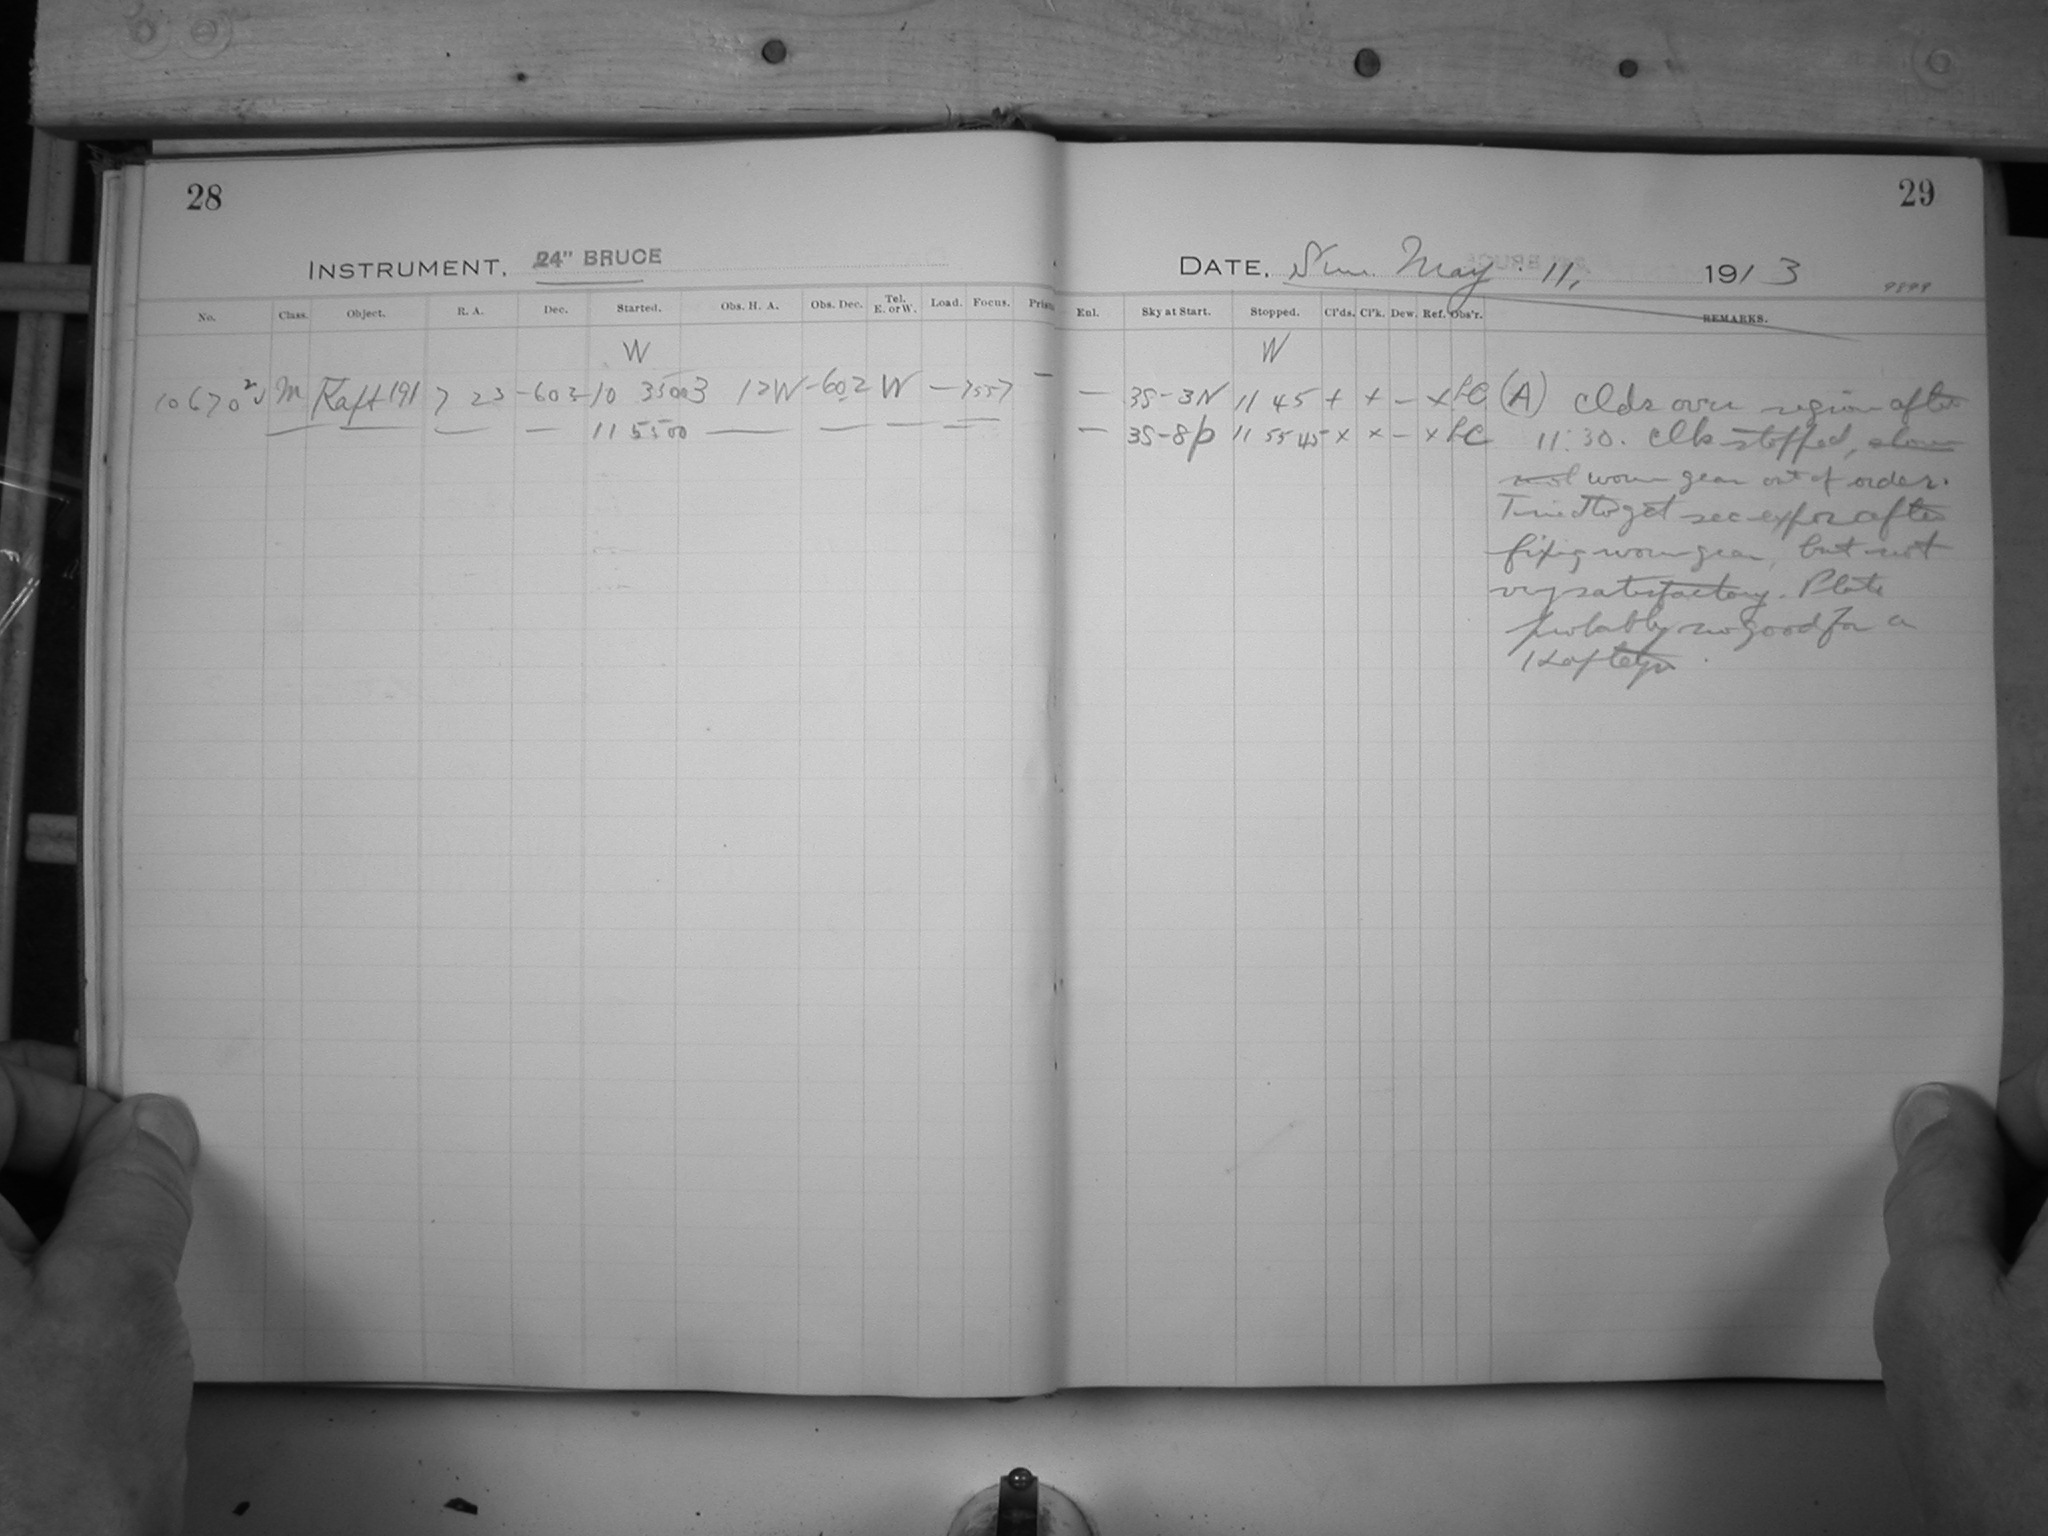 28
29
INSTRUMENT, 24" BRUCE
DATE, Sun. May 11, 1913
9899
No. Class. Object. R. A. Dec. Started. Obs. H. A. Obs. Dec. Tel. E. or W. Load. Focus. Prism
Enl. Sky at Start. Stopped. Cl'ds. Cl'k. Dew. Ref. Obs'r. REMARKS.
W W
10670 M Kaft 191 7 23 -60 3 10 3500 3 12W -602 W — 7557 —
— 3S-3N 11 45 + + — x LC (A) Clds over region after
— — — — 11 5500 — — — —
— 3S-8p 11 55 45 x x — x LC 11:30. Clk stopped,
worm gear out of order.
Tried to get sec expos after
fixing worm gear, but not
very satisfactory. Plate
probably no good for a
Kapteyn.